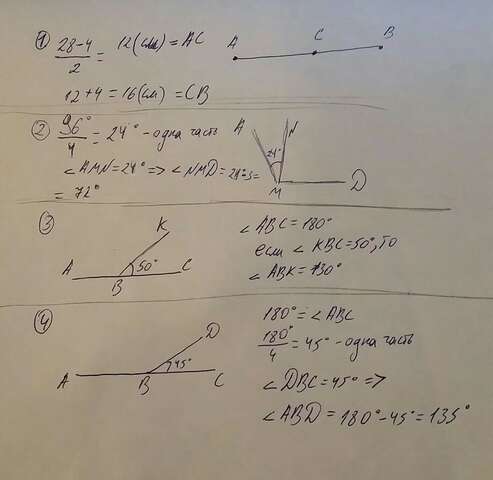 ① 28-4/2 = 12(см) = AC
A C B
12+4 = 16(см) = CB
② 96°/4 = 24° - одна часть
∠AMN = 24° => ∠NMD = 24°·3=
= 72°
A N
24°
M D
③ K
A B 50° C
∠ABC = 180°
если ∠KBC = 50°, то
∠ABK = 130°
④ D
A B 45° C
180° = ∠ABC
180°/4 = 45° - одна часть
∠DBC = 45° =>
∠ABD = 180° - 45° = 135°